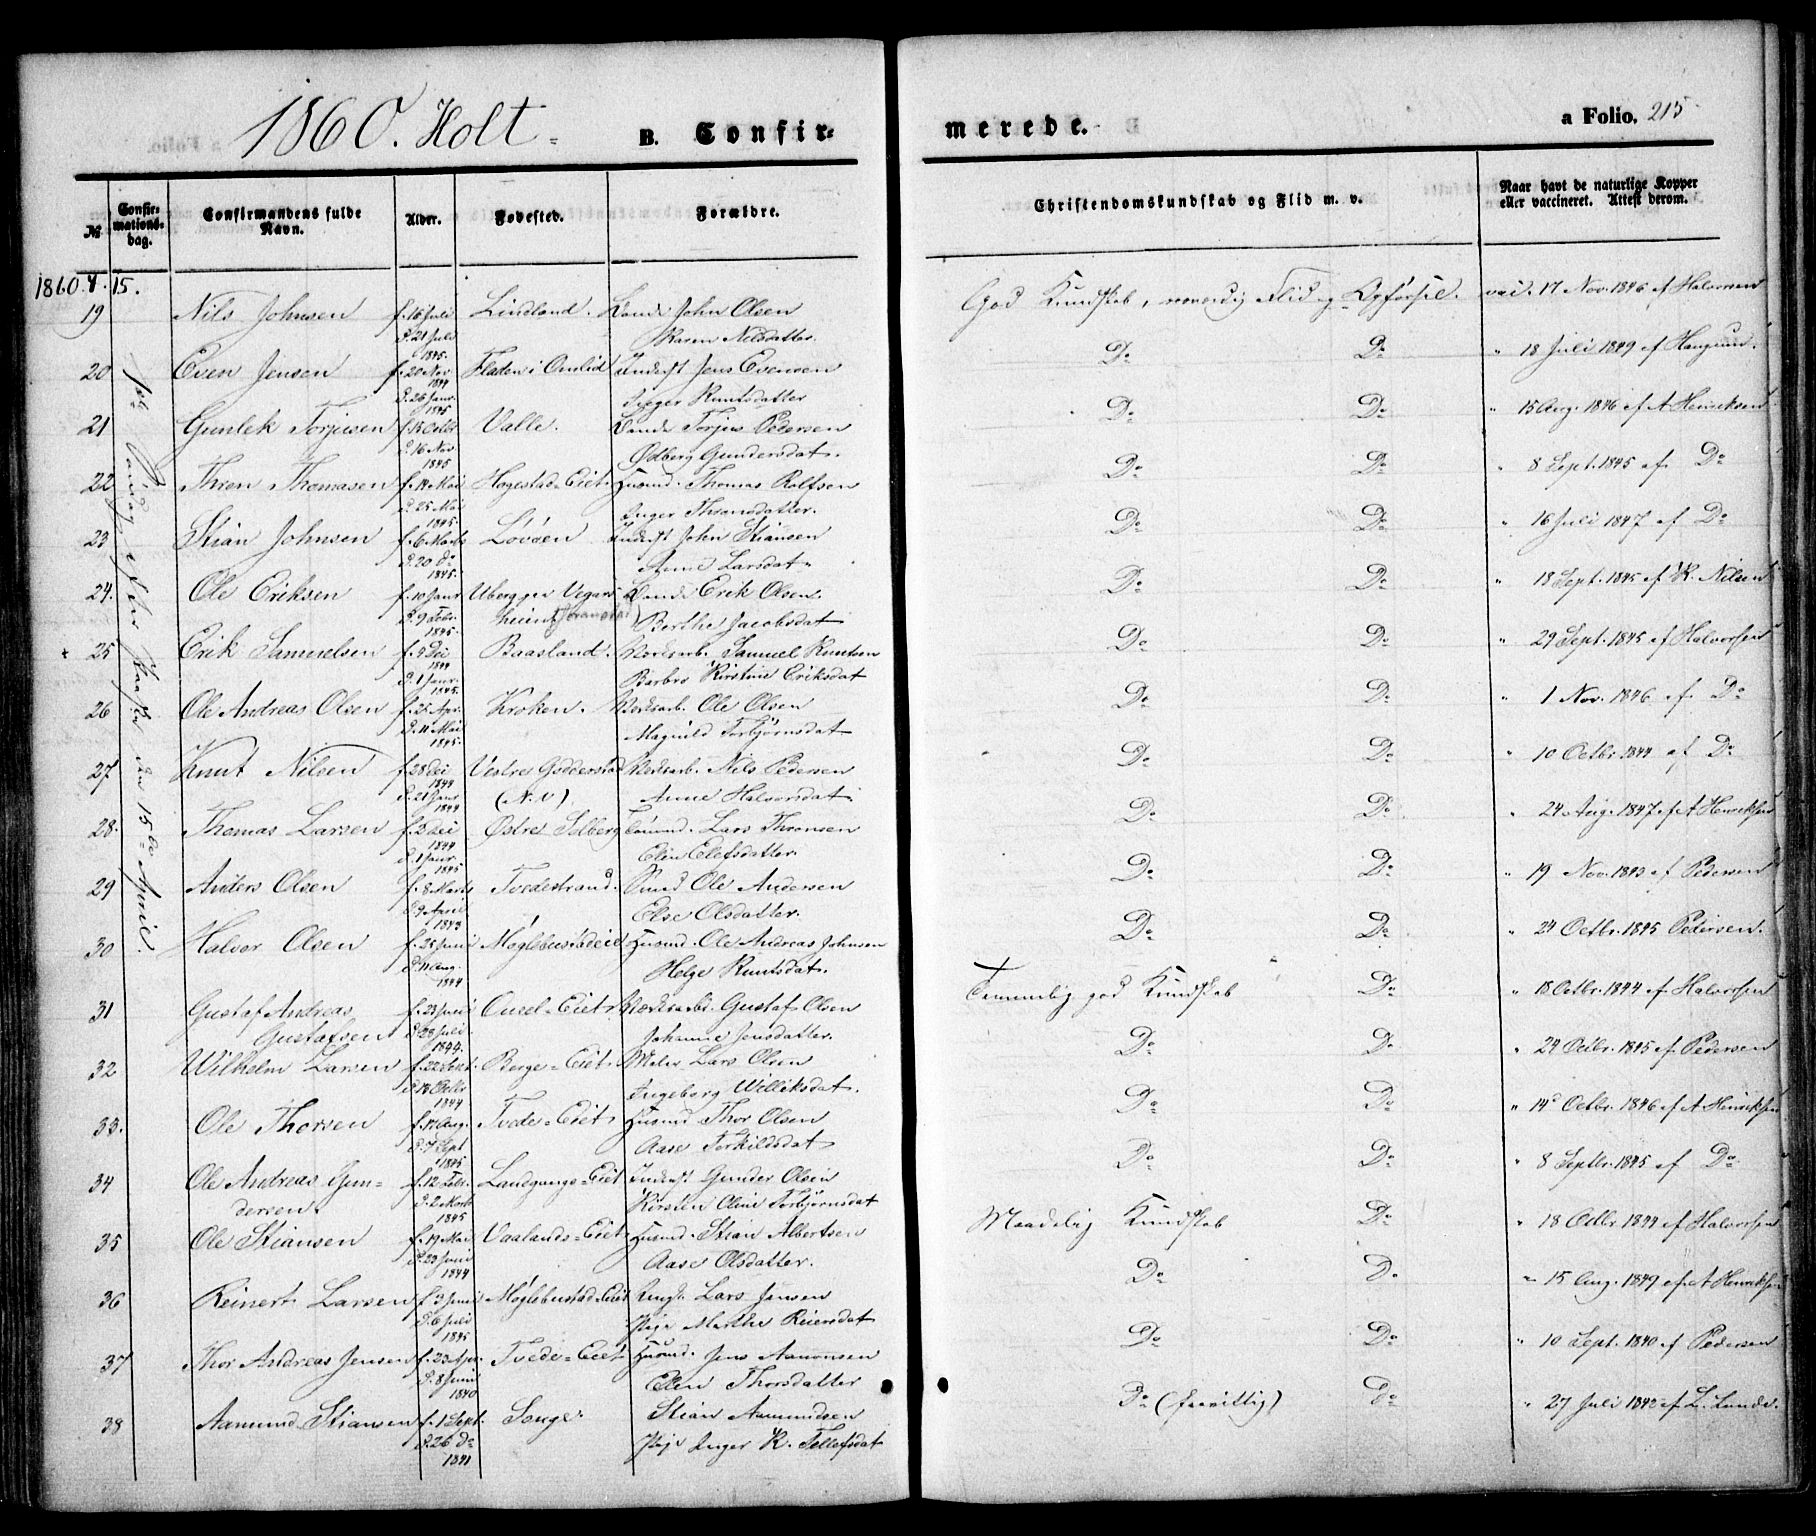 1860. Holt
B. Confir-
merede.
a Folio. 215
№
Confir-
mations-
dag.
Confirmandens fulde
Navn.
Alder.
Fødested.
Forældre.
Christendomskundskab og Flid m. v.
Naar havt de naturlige Kopper
eller vaccineret. Attest derom.
1860. 4. 15.
1ste Søndag efter Paaske den 15de April.
19 Nils Johnsen f. 16 Juli Lindland. John Olsen God Kundskab, Flid og Opførsel. vac. 17 Nov. 1846 af Halvorsen
d. 21 Juli 1845. Karen Nilsdatter.
20 Even Jensen f. 20 Nov 1844 Fladen i Omlid Inderst Jens Evensen Do Do " 18 Juli 1849 af
d. 26 Janr. 1845 Inger Knutsdatter
21 Gunlek Torjusen f. 15 Octbr Valle. Torjus Pedersen Do Do " 15 Aug. 1846 af A Henriksen
d. 16 Nov 1845 Ødberg Gundersdat.
22 Thron Thomasen f. 14 Mai Hogestad-Eiet. Husmd. Thomas Rolfsen Do Do " 8 Sept. 1845 af Do
d. 25 Mai 1845. Inger Thronsdatter.
23 Stian Johnsen f. 6 Marts Løvøen Inderst John Stiansen Do Do " 16 Juli 1847 af Do
d. 20 Do 1845. Anne Larsdat.
24. Ole Eriksen f. 10 Janr Uberg paa Vegars- Erik Olsen. Do Do " 18 Sept. 1845 af K. Nilsen
d. 9 Febr. 1845. heien Berthe Jacobsdat
25 Erik Samuelsen f. 4 Dec 1844 Baasland. Værksarb. Samuel Knutsen Do Do " 29 Sept. 1845 af Halvorsen
d. 1 Janr. 1845. Barbro Kirstine Eriksdat
26 Ole Andreas Olsen f. 25 Apr. Kroken. Værksarb. Ole Olsen Do Do " 1 Nov. 1846 af Do
d. 11 Mai 1845. Magnild Torbjørnsdat
27 Knut Nilsen f. 28 Dec 1844 Vestre Godderstad Værksarb. Nils Pedersen Do Do " 10 Octbr. 1844 af Do
d. 21 Janr. 1844 (N.V.) Anne Halvorsdat.
28. Thomas Larsen f. 2 Dec 1844 Østre Solberg Lars Thronsen Do Do " 24 Aug. 1847 af A Henriksen
d. 1 Janr. 1845 Elen Elefsdatter.
29 Anders Olsen f. 8 Marts Tvedestrand. Smed Ole Andersen Do Do " 19 Nov. 1843 af Pedersen
d. 9 April 1843. Else Olsdatter.
30 Halvor Olsen f. 25 Juni Møglebustadeiet Husmd. Ole Andreas Johnsen Do Do " 24 Octbr. 1845 Pedersen.
d. 11 Aug. 1844 Helge Knutsdat.
31 Gustaf Andreas f. 23 Juni Værksarb. Gustaf Olsen Temmelig god Kundskab Do " 18 Octbr. 1844 af Halvorsen
Gustafsen d. 28 Juli 1844. Johanne Jensdatter.
32 Wilhelm Larsen f. 22 Sept. Berge-Eiet. Maler Lars Olsen Do Do " 24 Octbr. 1845 af Pedersen
d. 18 Octbr 1844 Ingeborg Williksdat.
33. Ole Thorsen f. 17 Aug. Tvede-Eiet Husmd Thor Olsen Do Do " 14 Octbr. 1846 af A Henriksen
d. 7 Sept 1845 Aase Torkildsdat
34 Ole Andreas Gun- f. 12 Febr. Landgangs-Eiet Inderst Gunder Olsen Do Do " 8 Septbr. 1845 af Do
dersen. d. 2 Marts 1845 Kirsten Oline Torbjørnsdat
35 Ole Stiansen f. 19 Mai Vaalands-Eiet Husmd. Stian Albertsen Maadelig Kundskab Do " 18 Octbr 1844 af Halvorsen
d. 23 Juni 1844 Aase Olsdatter.
36 Reinert Larsen f. 3 Juni Møglebustad-Eiet Ungk. Lars Jensen Do Do " 15 Aug. 1849 af A Henriksen
d. 6 Juli 1845 Pige Marthe Reiersdat
37 Thor Andreas Jensen f. 23 Apr. Tvede-Eiet Husmd. Jens Aanonsen Do Do " 10 Sept. 1840 af Pedersen
d. 8 Juni 1840 Elen Thorsdatter
38 Aamund Stiansen f. 1 Sept. Songe. Stian Aamundsen Do (frivillig) Do " 27 Juli af L. Lunde.
d. 26 Do 1841 Pige Inger K. Tellefsdat